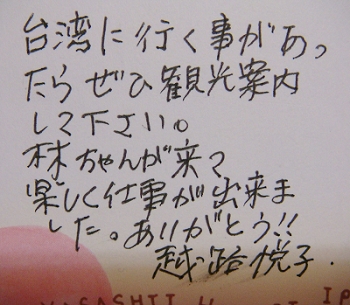 台湾に行く事があっ
たらぜひ観光案内
して下さい。
林ちゃんが来て
楽しく仕事が出来ま
した。ありがとう!!
越路悦子.